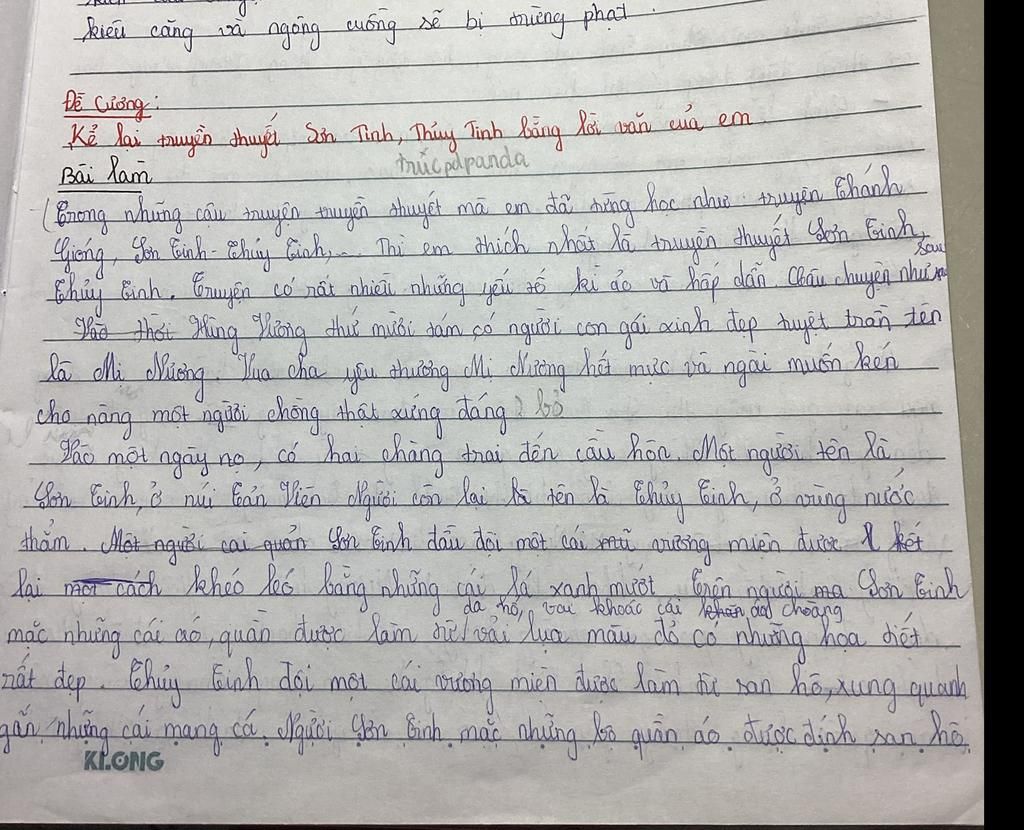 kiêu căng và ngông cuồng sẽ bị trừng phạt.
Đề cương:
Kể lại truyền thuyết Sơn Tinh, Thủy Tinh bằng lời văn của em
trucpdpanda
Bài làm
Trong những câu truyện truyền thuyết mà em đã từng học như: truyện Thánh
Gióng, Sơn Tinh - Thủy Tinh,... Thì em thích nhất là truyền thuyết Sơn Tinh,
Thủy Tinh. Truyện có rất nhiều những yếu tố kì ảo và hấp dẫn. Câu chuyện như sau
Vào thời Hùng Vương thứ mười tám, có người con gái xinh đẹp tuyệt trần tên
là Mị Nương. Vua cha yêu thương Mị Nương hết mực và ngài muốn kén
cho nàng một người chồng thật xứng đáng bỏ
Vào một ngày nọ, có hai chàng trai đến cầu hôn. Một người tên là
Sơn Tinh, ở núi Tản Viên Người còn lại là tên là Thủy Tinh, ở vùng nước
thẳm. Một người cai quản Sơn Tinh đầu đội một cái mũ vương miện được kết
lại một cách khéo léo bằng những cái lá xanh mướt. Trên người ma Sơn Tinh
da hổ, vai khoác cái khăn áo choàng
mặc những cái áo, quần được làm từ vải lụa màu đỏ có những họa tiết
rất đẹp. Thủy Tinh đội một cái vương miện được làm từ san hô, xung quanh
gắn những cái mang cá. Người Sơn Tinh mặc những bộ quần áo được đính san hô,
KLONG